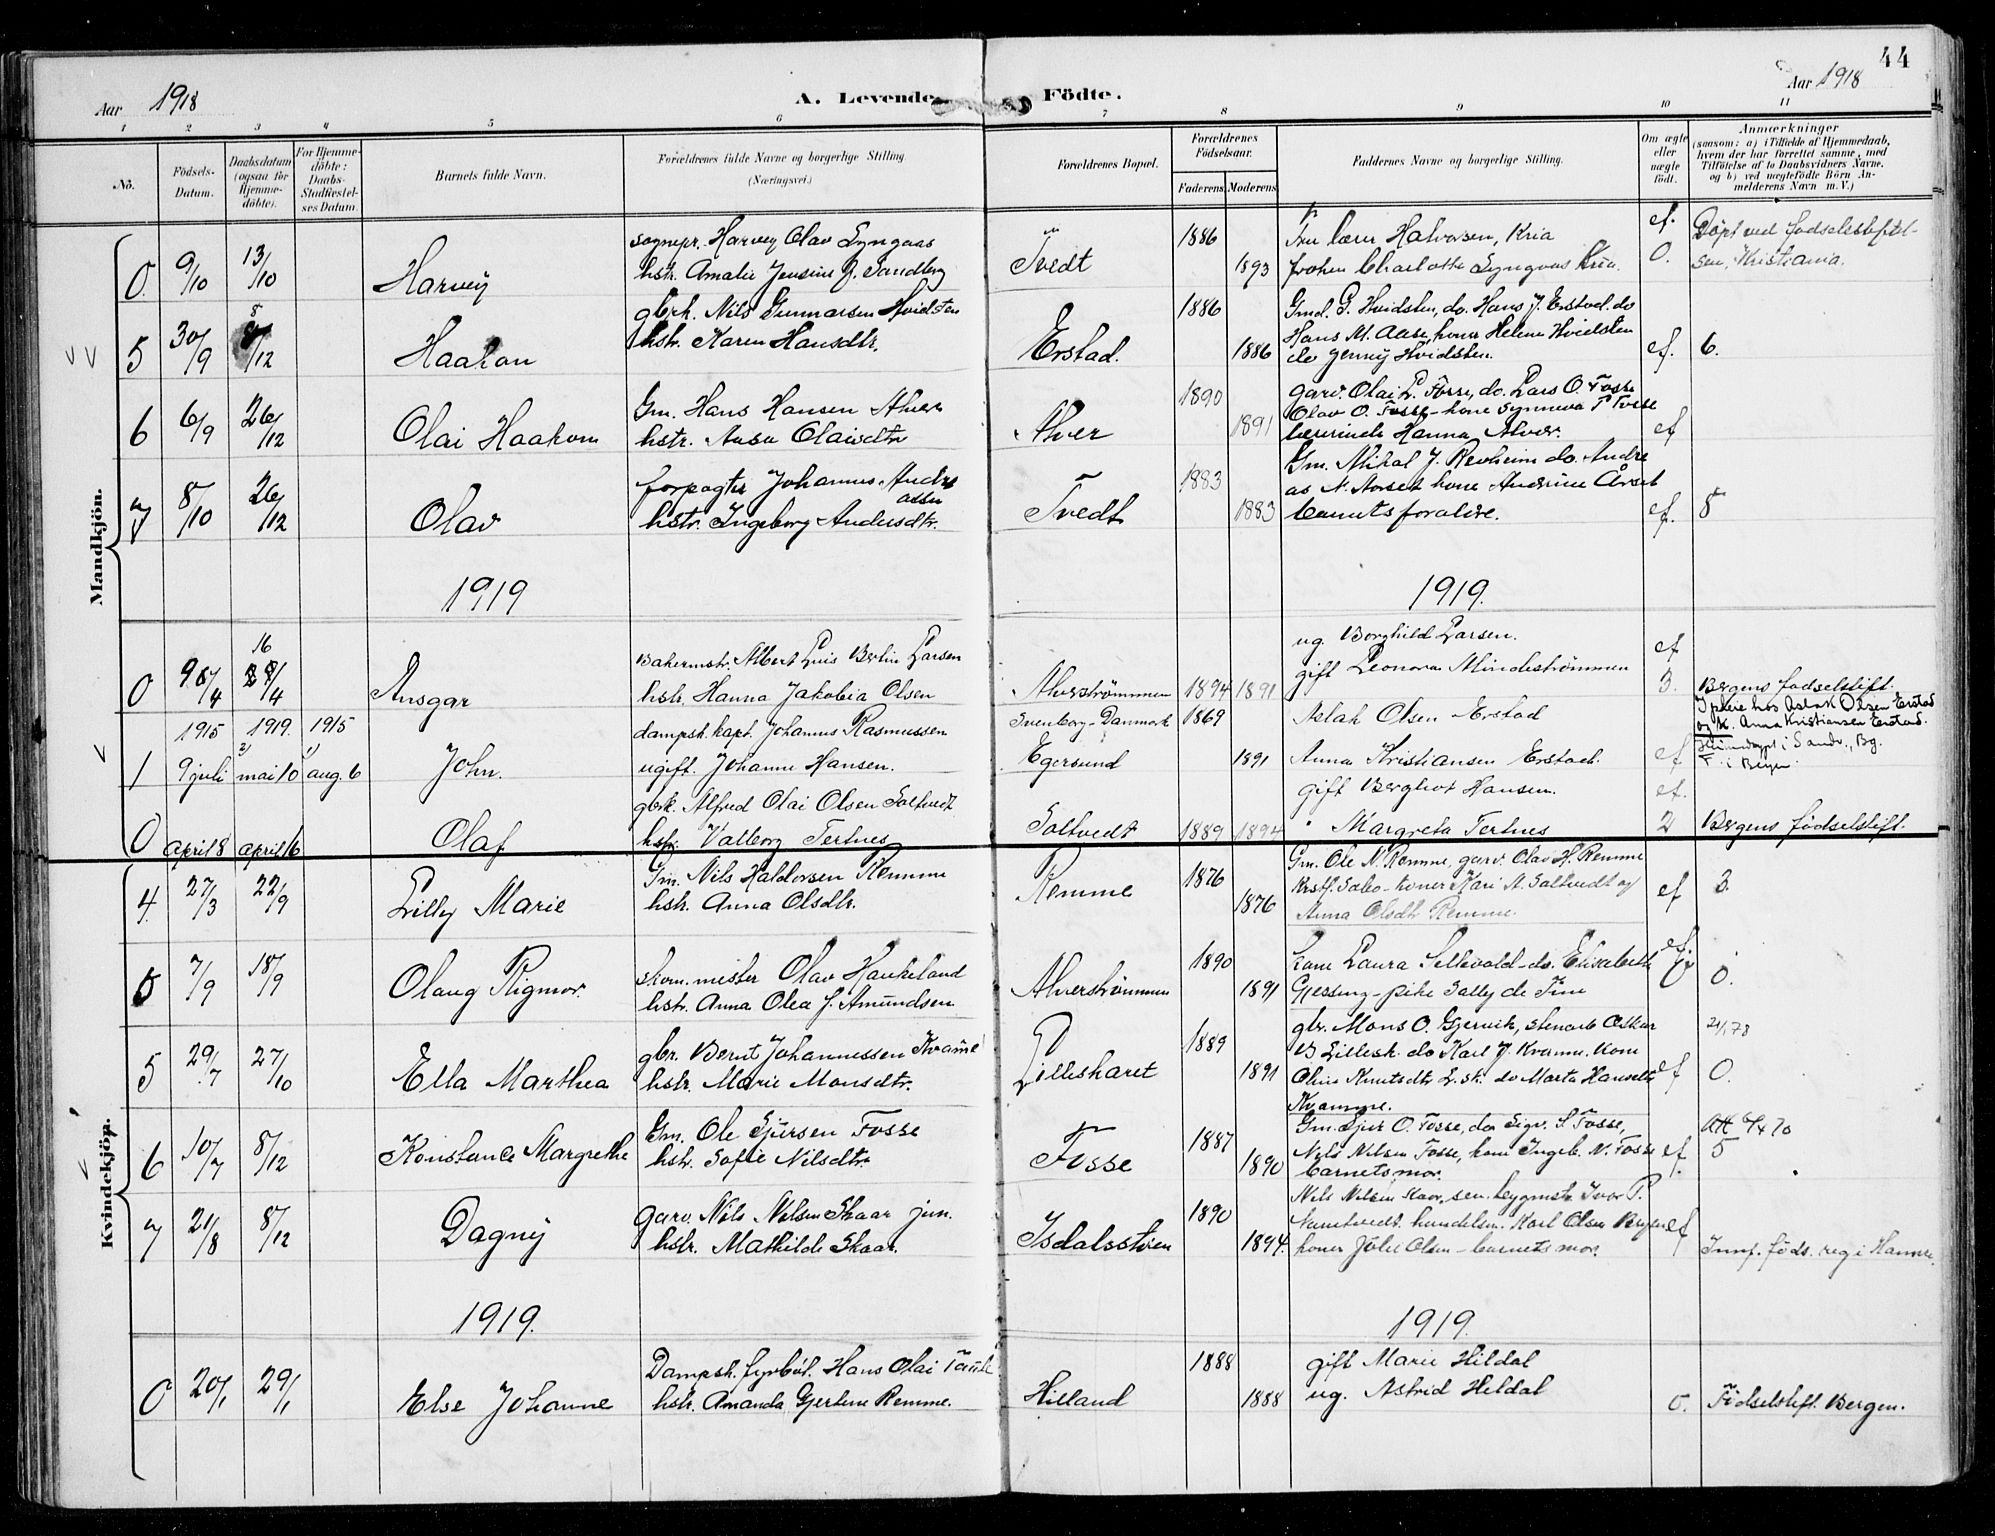 44
Aar 1918
A. Levende Födte.
Aar 1918
1 2 3 4 5 6 7 8 9 10 11
No.
Födsels-Datum.
Daabsdatum (ogsaa for Hjemme-döbte).
For Hjemme-döbte: Daabs-Stadfæstel-ses Datum.
Barnets fulde Navn.
Forældrenes fulde Navne og borgerlige Stilling.
(Næringsvei.)
Forældrenes Bopæl.
Forældrenes Fødselsaar.
Faderens Moderens
Faddernes Navne og borgerlige Stilling.
Om ægte eller uægte født.
Anmærkninger
(saasom: a) i Tilfælde af Hjemmedaab, hvem der har forrettet samme, med Tilföielse af to Daabsvidners Navne, og b) ved uægtefödte Börn An-melderens Navn m. V.)
Mandkjön.
0. 9/10 13/10 Harvey
sognepr. Harvey Olav Lyngaas
hstr. Amalie Jensine f. Sandberg
Tvedt 1886 1893
Fru lærer Halvorsen, Kria
frøken Charlotte Lyngaas Kria.
ef. 0.
Döpt ved fødselsstiftel-
sen, Kristiania.
5 30/9 8/12 Haakon
gbrk. Nils Gunnarsen Hvidsten
hstr. Karen Hansdtr.
Erstad. 1886 1886
Gmd. G. Hvidsten, do. Hans J. Erstad. do
Hans M. Aase, koner Helene Hvidsten
do Jenny Hvidsten.
ef. 6.
6 6/9 26/12 Olai Haakon
Gm. Hans Hansen Alver
hstr. Aasa Olaisdtr
Alver 1890 1891
garv. Olai L. Fosse, do. Lars O. Fosse
Olav O. Fosse - kone Synneva P Fosse
lærerinde Hanna Alver.
ef
7 8/10 26/12 Olav
forpagter Johannes Andre
assen
hstr. Ingeborg Andersdtr.
Tvedt 1883 1883
Gm. Mikal J. Revheim do. Andre
as N. kone Andrine
barnets forældre.
ef. 5
1919
1919.
0 9/4 16/4 Ansgar
Bakermstr. Albert Luis Berlin Larsen
hstr. Hanna Jakobia Olsen
Alverströmmen 1894 1891
ug. Borghild Larsen.
gift Leonora Mindeströmmen
ef 3.
Bergens fødselstift.
1915 1919. 1915
1 9 juli 2) mai 10 1) aug. 6 John.
dampsk. kapt. Johannes Rasmussen
ugift. Johanne Hansen.
Svenborg-Danmark 1869
Egersund 1891
Aslak Olsen Erstad
Anna Kristiansen Erstad.
ef
I pleie hos Aslak Olsen Erstad
og k. Anna Kristiansen Erstad.
Heimedøpt i Sandv., Bg.
F. i Bergen.
0 april 8 april 16 Olaf
gbrk. Alfred Olai Olsen Soltvedt
hstr. Valborg Tertnes
Soltvedt 1889 1894
gift Bergliot Hansen.
" Margreta Tertnes
ef. 2
Bergens fødselstift.
Kvindekjön.
4. 27/3 22/9 Lilly Marie
Gm. Nils Haldorsen Remme
hstr. Anna Olsdtr.
Remme 1876 1876
Gm. Ole N. Remme, garv. Olav H. Remme
Kristf. Sabo - koner Kari A. Soltvedt og
Anna Olsdtr Remme.
ef 3.
5 7/9 18/9 Olaug Rigmor.
skom. mester Olav Haukeland
hstr. Anna Olea f. Amundsen
Alverströmmen 1890 1891
kone Laura Sellevold - do. Elisabeth
Gjessing - pike Sally do Tine
ef. 0.
5 29/7 27/10 Ella Marthea
gbr. Bernt Johannessen Kvamme
hstr. Marie Monsdtr.
Lilleskaret 1889 1891
gbr. Mons O. Gjervik, stenarb Oskar
B Lillesk. do Karl J. Kvamme. kone
Oline Knutsdtr L.sk. do Marta Hansdtr
Kvamme.
ef 0.
6 10/7 8/12 Konstance Margrethe
Gm. Ole Sjursen Fosse
hstr. Sofie Nilsdtr.
Fosse 1887 1890
Gm. Sjur O. Fosse, do Sigv. S. Fosse,
Nils Nilsen Fosse, kone Ingeb. N. Fosse
barnets mor.
ef. 5
7 21/8 8/12 Dagny
garv. Nils Nilsen Skaar jun.
hstr. Mathilde Skaar.
Isdalsstöen 1890 1894.
Nils Nilsen Skaar, sen. bygmstr Ivar P.
handelsm. Karl Olsen Bergen
koner Julie Olsen - barnets mor.
ef
Innf. föds. reg i Hamre.
1919.
1919.
0 20/1 29/1 Else Johanne
Dampsk. fyrböt. Hans Olai
hstr. Amanda Gjertine Remme.
Hilland 1888 1888
gift Marie Hildal
ug. Astrid Hildal
0.
Födselstift. Bergen.